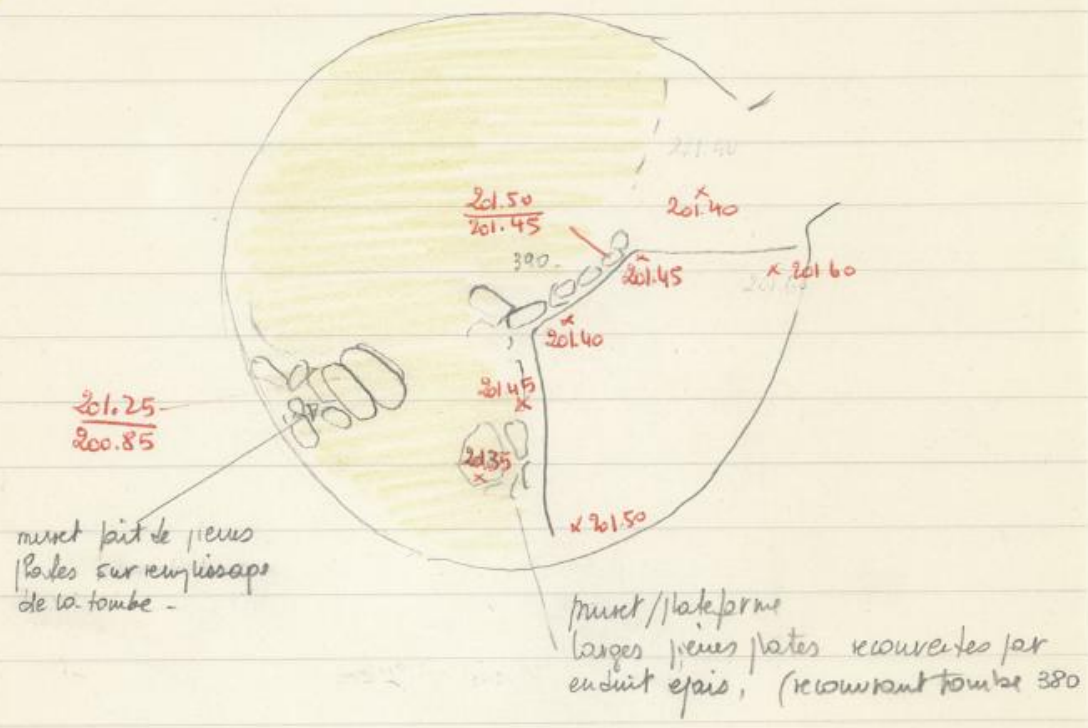 201.50
201.45
201.40
390.
201.45
201.60
201.40
201.45
201.25
200.85
201.35
201.50
muret fait de pierres
plates sur remplissage
de la tombe -
muret/plateforme
larges pierres plates recouvertes par
enduit épais, (recouvrant tombe 380